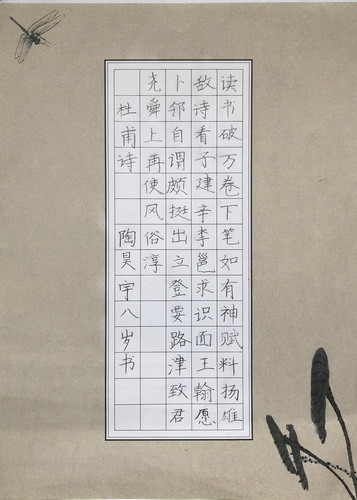 读书破万卷下笔如有神赋料扬雄
敌诗看子建辛李邕求识面王翰愿
卜邻自谓颇挺出立登要路津致君
尧舜上再使风俗淳
杜甫诗 陶昊宇八岁书